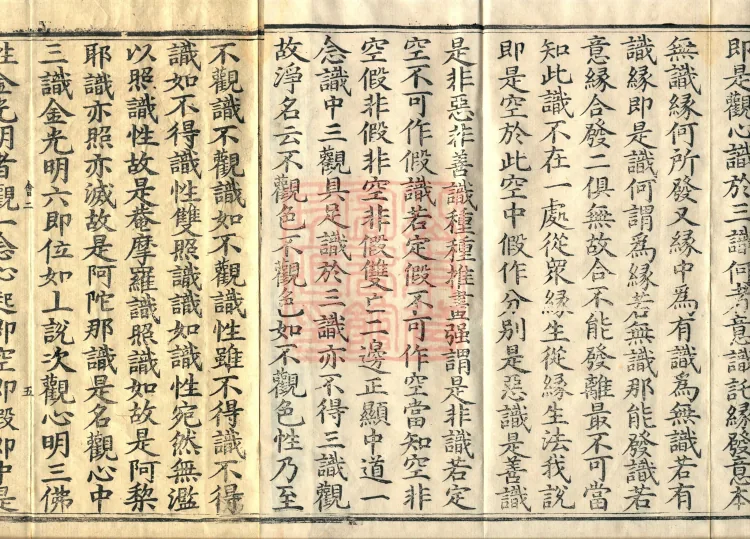 即是觀心識於三識何者意識託緣發意本
無識緣何所發又緣中為有識為無識若有
識緣即是識何謂為緣若無識那能發識若
意緣合發二俱無故合不能發離最不可當
知此識不在一處從衆緣生從緣生法我說
即是空於此空中假作分別是惡識是善識
是非惡非善識種種推畫强謂是非識若定
空不可作假識若定假不可作空當知空非
空假非假非空非假雙亡二邊正顯中道一
念識中三觀具足識於三識亦不得三識觀
故淨名云不觀色不觀色如不觀色性乃至
不觀識不觀識如不觀識性雖不得識不得
識如不得識性雙照識識如識性宛然無濫
以照識性故是菴摩羅識照識如故是阿棃
耶識亦照亦滅故是阿陀那識是名觀心中
三識金光明六即位如上說次觀心明三佛
會二
五
性金光明者觀一念心起即空即假即中是